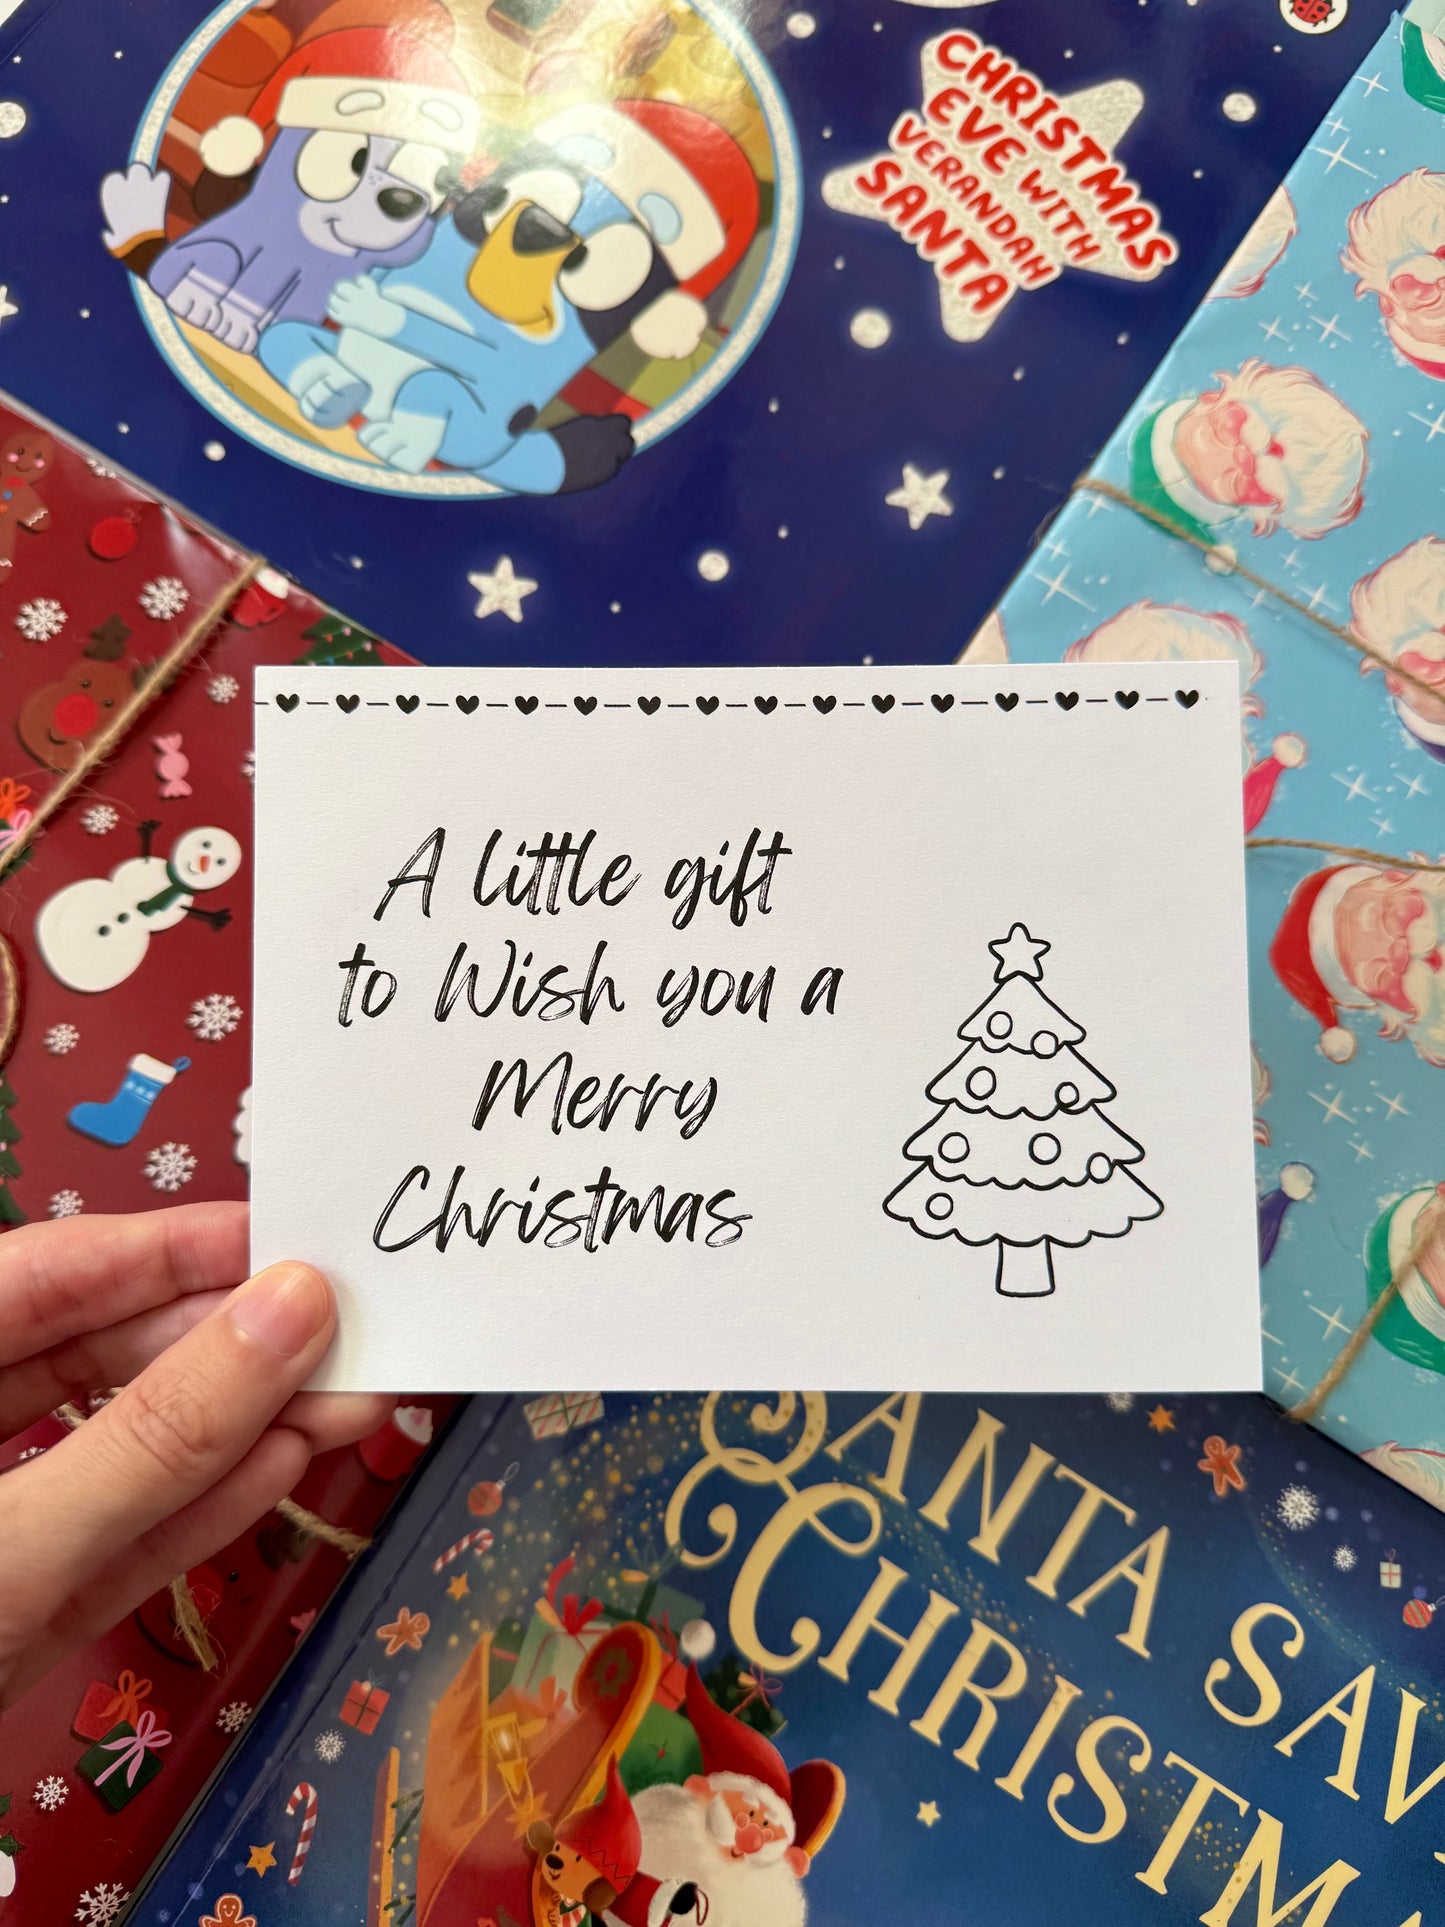 CHRISTMAS
EVE WITH
VERANDAH
SANTA
A little gift
to Wish you a
Merry
Christmas
SANTA SAV
CHRISTM